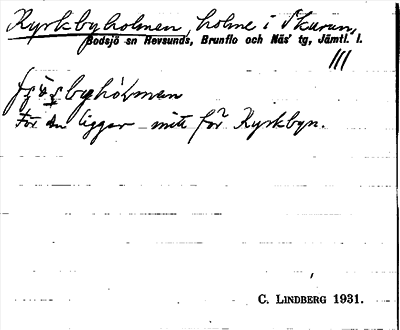 Kyrkbyholmen, holme i Skurun,
Bodsjö sn Revsunds, Brunflo och Näs' tg, Jämtl. l.
III
byhólmen
För den ligger mitt för Kyrkbyn.
C. LINDBERG 1931.